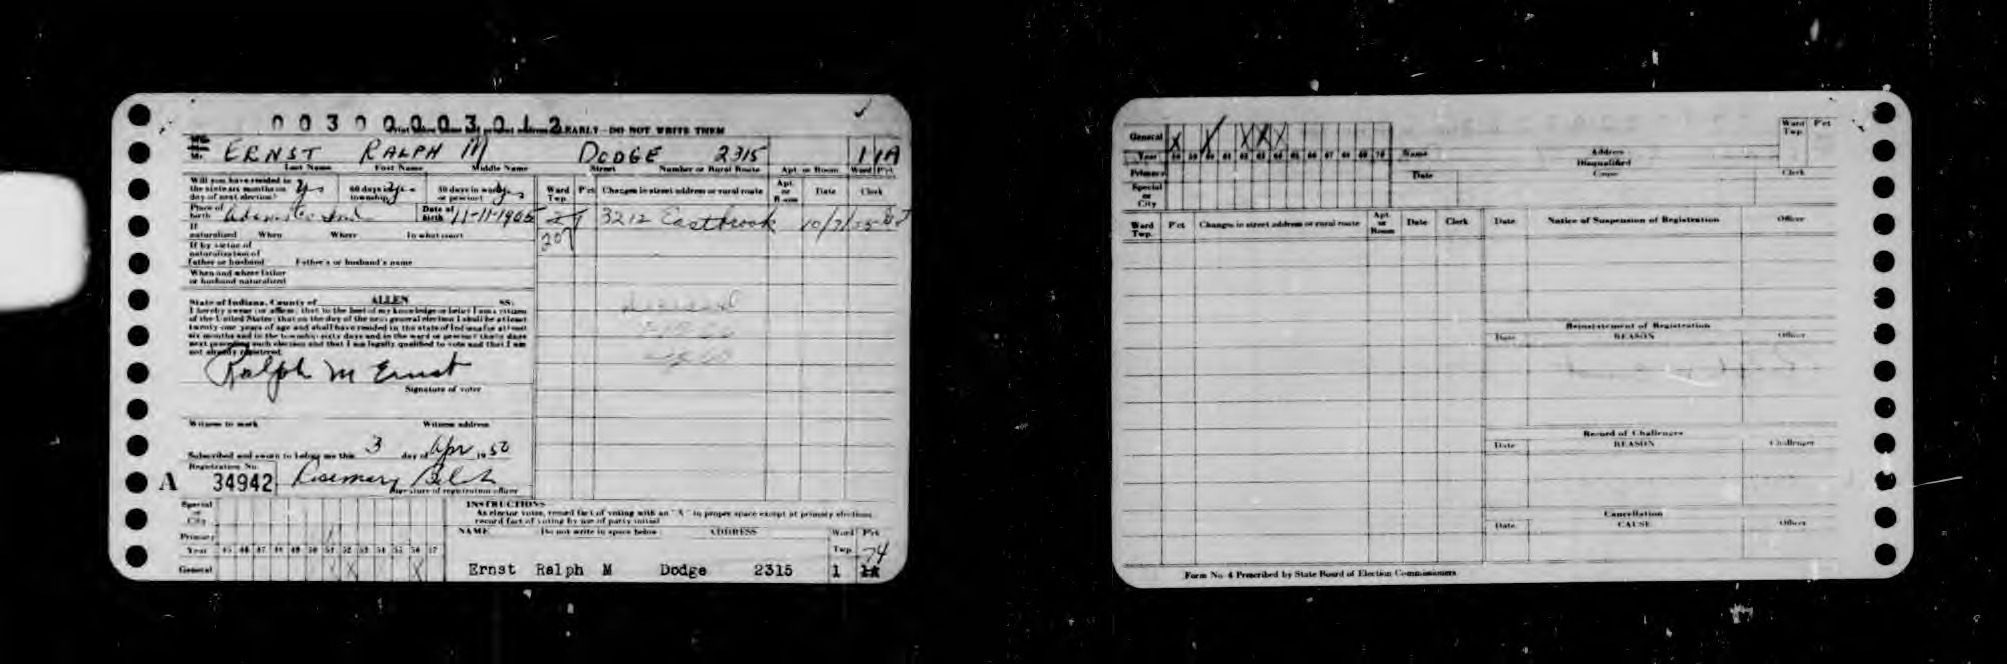 003000003012
CLEARLY—DO NOT WRITE THEM
Mr. ERNST RALPH M DODGE 2315 1 1A
Last Name First Name Middle Name Street Number or Rural Route Apt. or Room Ward P'ct
Will you have resided in
the state six months on
day of next election? 60 days in
township 30 days in ward
or precinct
Ward Twp. P'ct Changes in street address or rural route Apt. or Room Date Clerk
Place of
birth Adams Co Ind Date of
birth 11-11-1905
3212 Eastbrook
207
If
naturalized When Where In what court
If by virtue of
naturalization of
father or husband Father's or husband's name
When and where father
or husband naturalized
State of Indiana, County of ALLEN SS:
I hereby swear (or affirm) that to the best of my knowledge or belief I am a citizen
of the United States; that on the day of the next general election I shall be at least
twenty-one years of age and shall have resided in the state of Indiana for at least
six months and in the township sixty days and in the ward or precinct thirty days
next preceding such election and that I am legally qualified to vote and that I am
not already registered.
Ralph M Ernst
Signature of voter
Witness to mark Witness address
Subscribed and sworn to before me this 3 day of Apr 1950
Registration No.
A 34942 Rosemary
Signature of registration officer
Special
or
City
Primary
Year 45 46 47 48 49 50 51 52 53 54 55 56 57
General
INSTRUCTIONS
As elector votes, record fact of voting with an "X" in proper space except at primary elections
record fact of voting by use of party initial
NAME Do not write in space below ADDRESS Ward Twp. P'ct
74
Ernst Ralph M Dodge 2315 1 1A
General X X X X
Year 58 59 60 61 62 63 64 65 66 67 68 69 70
Primary
Special
or
City
Ward
Twp. P'ct
Name Address
Disqualified
Date Cause Clerk
Ward
Twp. P'ct Changes in street address or rural route Apt.
or
Room Date Clerk
Date Notice of Suspension of Registration Officer
Reinstatement of Registration
Date REASON Officer
Record of Challenges
Date REASON Challenger
Cancellation
Date CAUSE Officer
Form No. 4 Prescribed by State Board of Election Commissioners